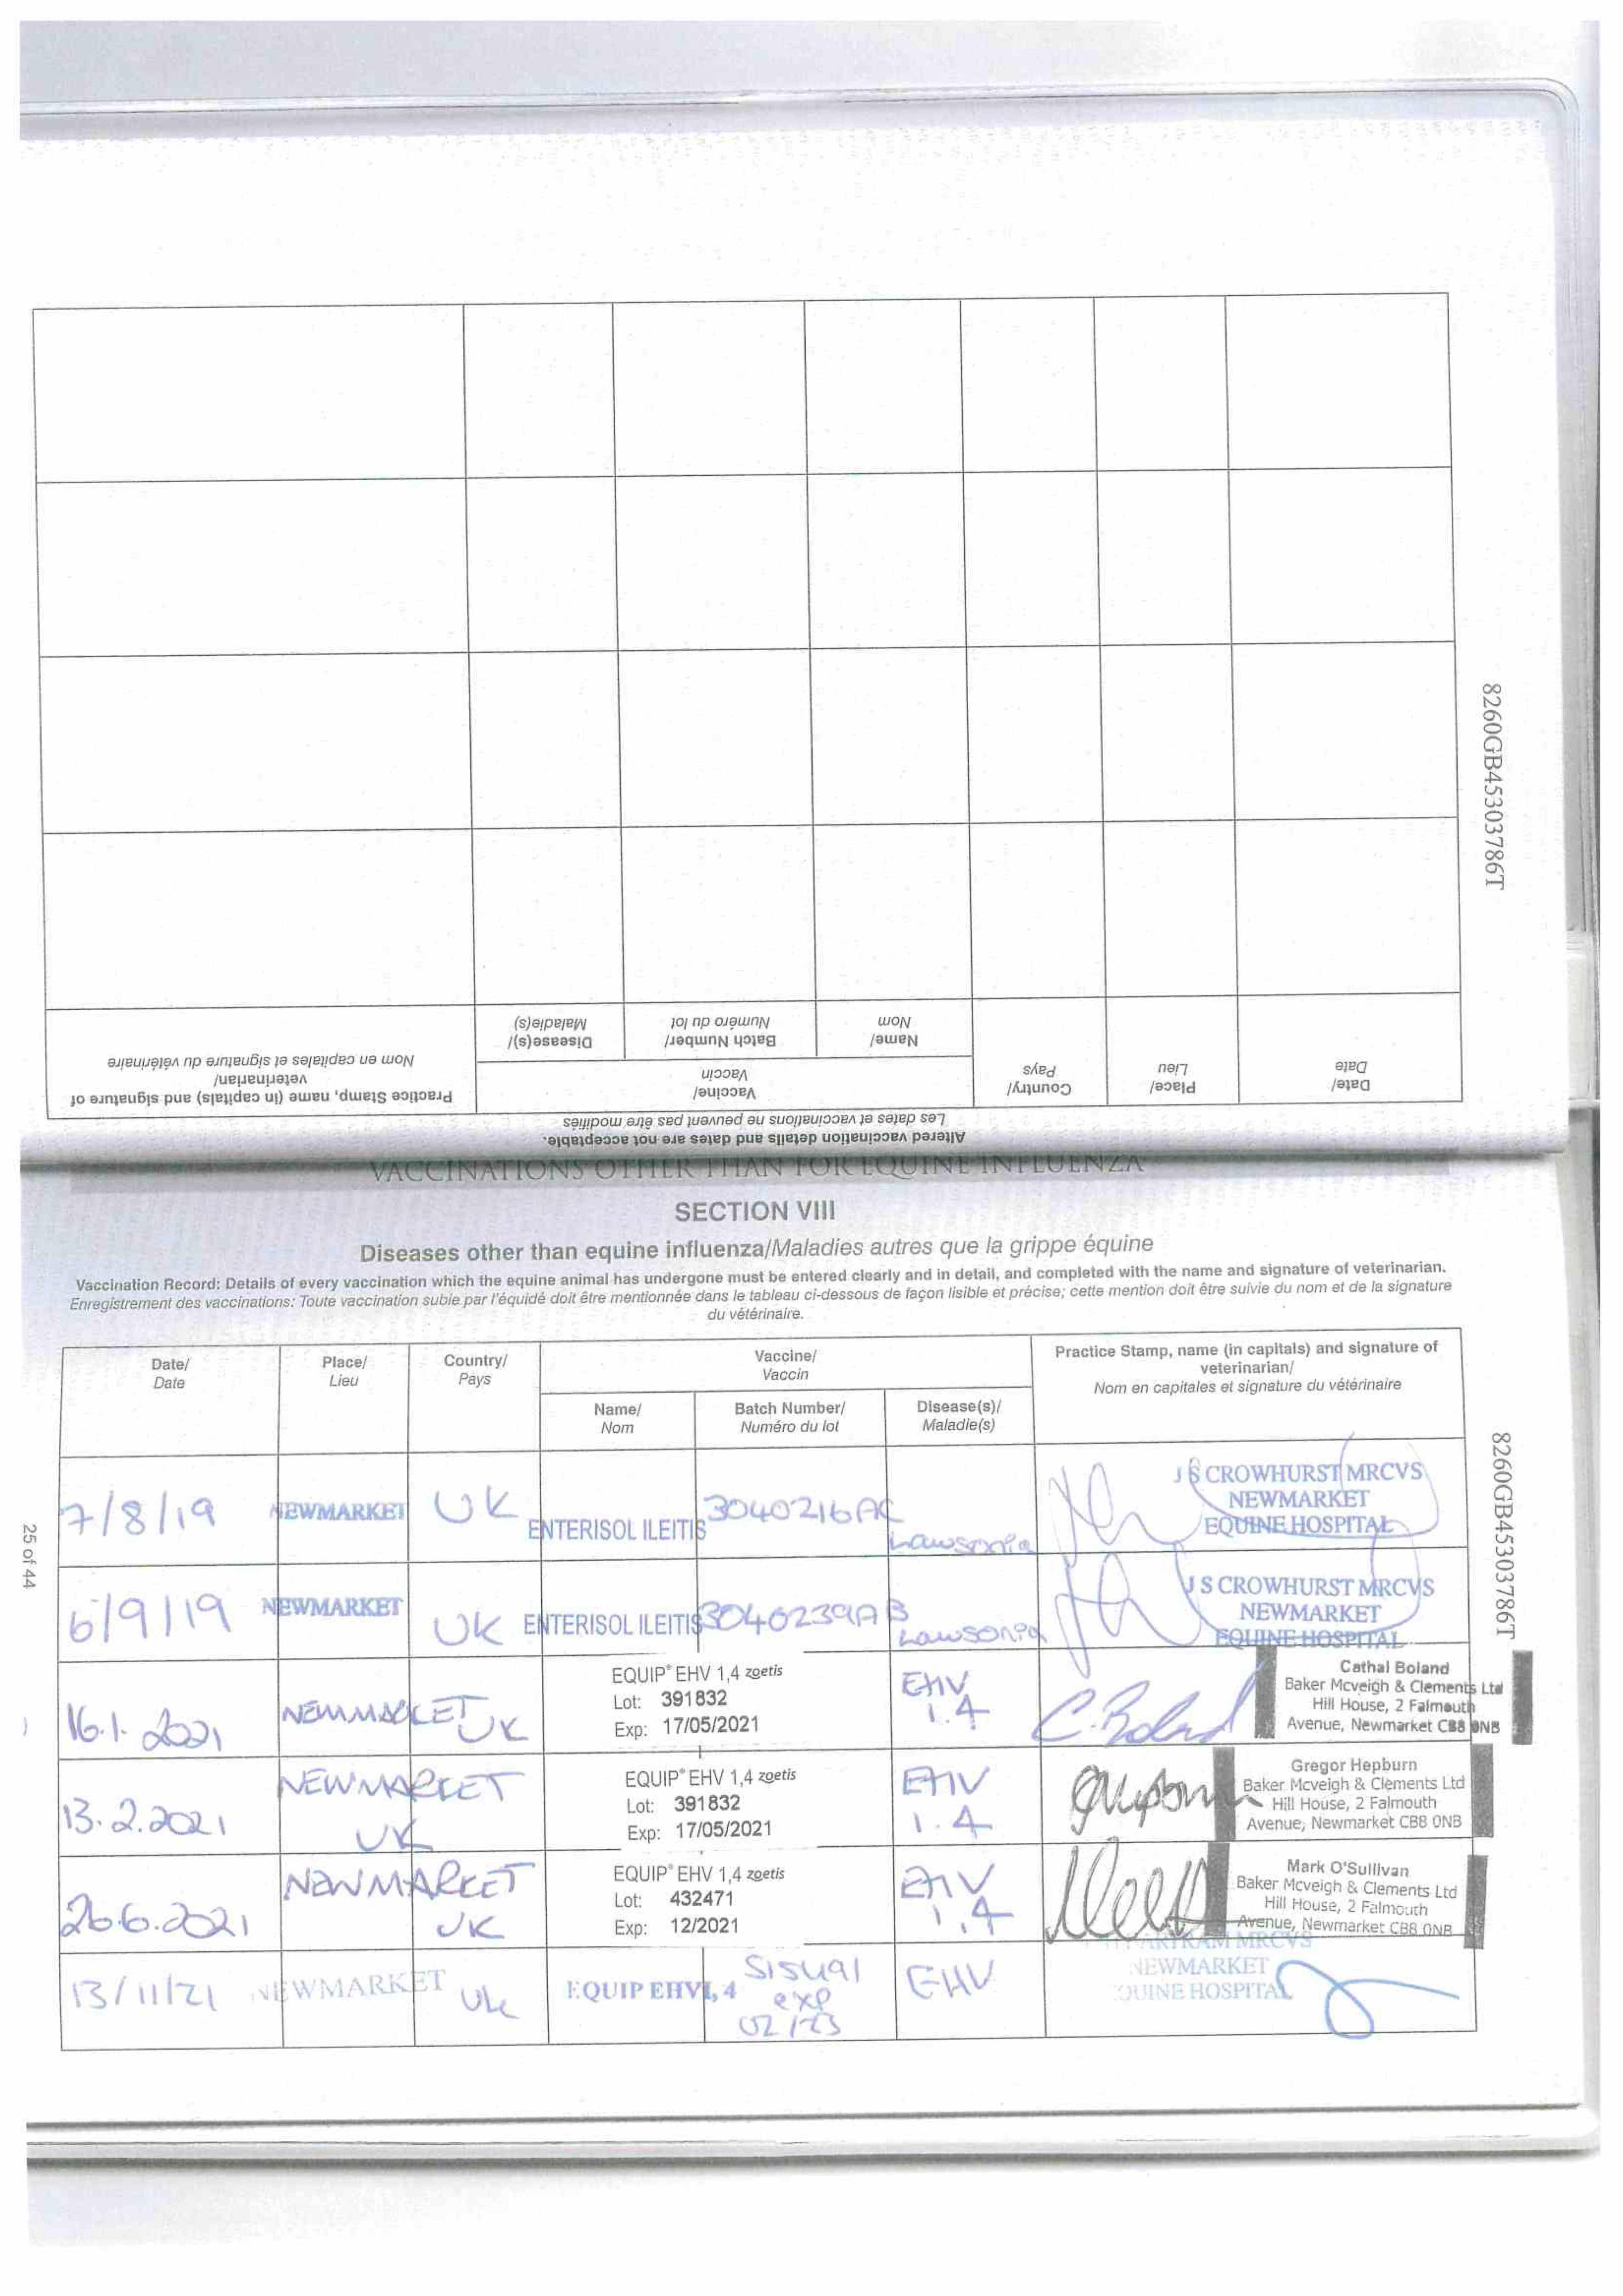 8260GB45303786T
Altered vaccination details and dates are not acceptable.
Les dates et vaccinations ne peuvent pas être modifiés
Date/
Date
Place/
Lieu
Country/
Pays
Vaccine/
Vaccin
Practice Stamp, name (in capitals) and signature of
veterinarian/
Nom en capitales et signature du vétérinaire
Name/
Nom
Batch Number/
Numéro du lot
Disease(s)/
Maladie(s)
VACCINATIONS OTHER THAN FOR EQUINE INFLUENZA
SECTION VIII
Diseases other than equine influenza/Maladies autres que la grippe équine
Vaccination Record: Details of every vaccination which the equine animal has undergone must be entered clearly and in detail, and completed with the name and signature of veterinarian.
Enregistrement des vaccinations: Toute vaccination subie par l'équidé doit être mentionnée dans le tableau ci-dessous de façon lisible et précise; cette mention doit être suivie du nom et de la signature
du vétérinaire.
Date/
Date
Place/
Lieu
Country/
Pays
Vaccine/
Vaccin
Practice Stamp, name (in capitals) and signature of
veterinarian/
Nom en capitales et signature du vétérinaire
Name/
Nom
Batch Number/
Numéro du lot
Disease(s)/
Maladie(s)
7/8/19
NEWMARKET
UK
ENTERISOL ILEITIS
3040216AC
Lawsonia
J S CROWHURST MRCVS
NEWMARKET
EQUINE HOSPITAL
6/9/19
NEWMARKET
UK
ENTERISOL ILEITIS
3040239AB
Lawsonia
J S CROWHURST MRCVS
NEWMARKET
EQUINE HOSPITAL
16.1.2021
NEWMARKET
UK
EQUIP® EHV 1,4 zoetis
Lot: 391832
Exp: 17/05/2021
EHV
1.4
C. Boland
Cathal Boland
Baker Mcveigh & Clements Ltd
Hill House, 2 Falmouth
Avenue, Newmarket CB8 0NB
13.2.2021
NEWMARKET
UK
EQUIP® EHV 1,4 zoetis
Lot: 391832
Exp: 17/05/2021
EHV
1.4
Gregor Hepburn
Baker Mcveigh & Clements Ltd
Hill House, 2 Falmouth
Avenue, Newmarket CB8 0NB
26.6.2021
NEWMARKET
UK
EQUIP® EHV 1,4 zoetis
Lot: 432471
Exp: 12/2021
EHV
1,4
Mark O'Sullivan
Baker Mcveigh & Clements Ltd
Hill House, 2 Falmouth
Avenue, Newmarket CB8 0NB
13/11/21
NEWMARKET
UK
EQUIP EHV1,4
515491
exp
02/23
EHV
MRCVS
NEWMARKET
QUINE HOSPITAL
8260GB45303786T
25 of 44